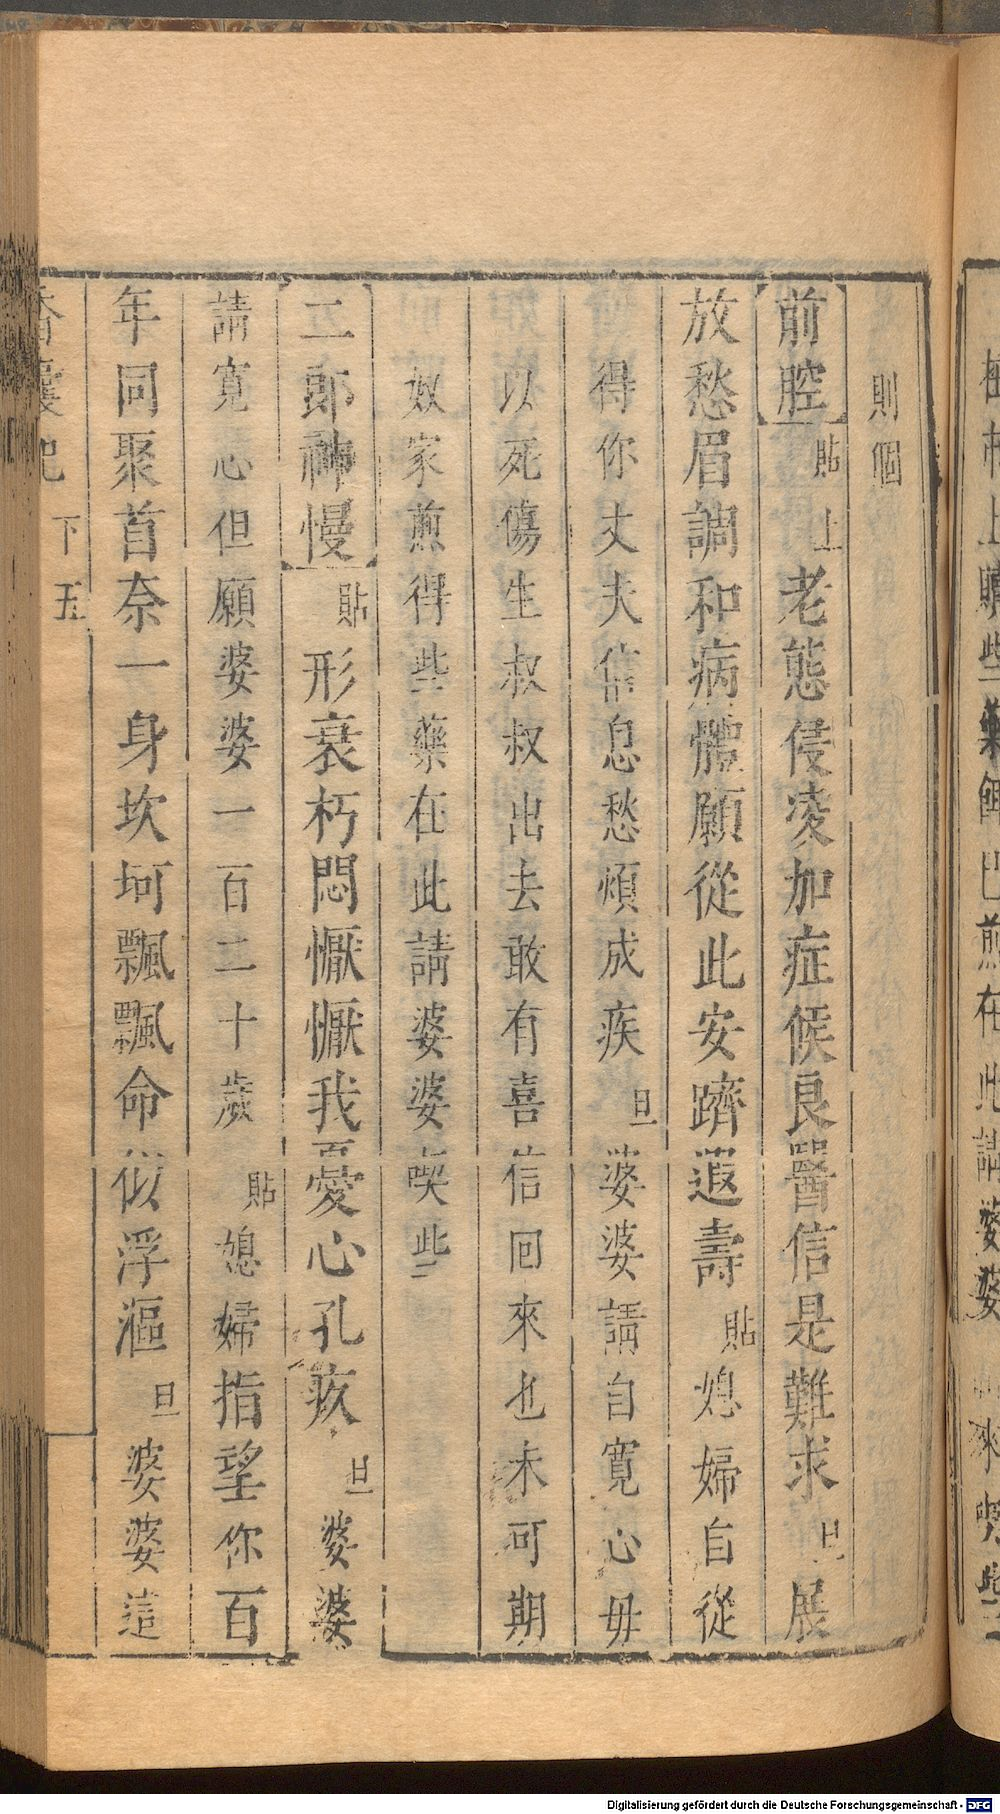 則個
前腔 貼 上 老態侵凌加症候良醫信是難求 旦 展
放愁眉調和病體願從此安躋遐壽 貼 媳婦自從
得你丈夫信息愁煩成疾 旦 婆婆請自寬心毋
以死傷生叔叔出去敢有喜信回來也未可期
奴家煎得些藥在此請婆婆喫些
二郎神慢 貼 形衰朽悶懨懨我憂心孔疚 旦 婆婆
請寬心但願婆婆一百二十歲 貼 媳婦指望你百
年同聚首奈一身坎坷飄飄命似浮漚 旦 婆婆這
香囊記 下 五
Digitalisierung gefördert durch die Deutsche Forschungsgemeinschaft - DFG